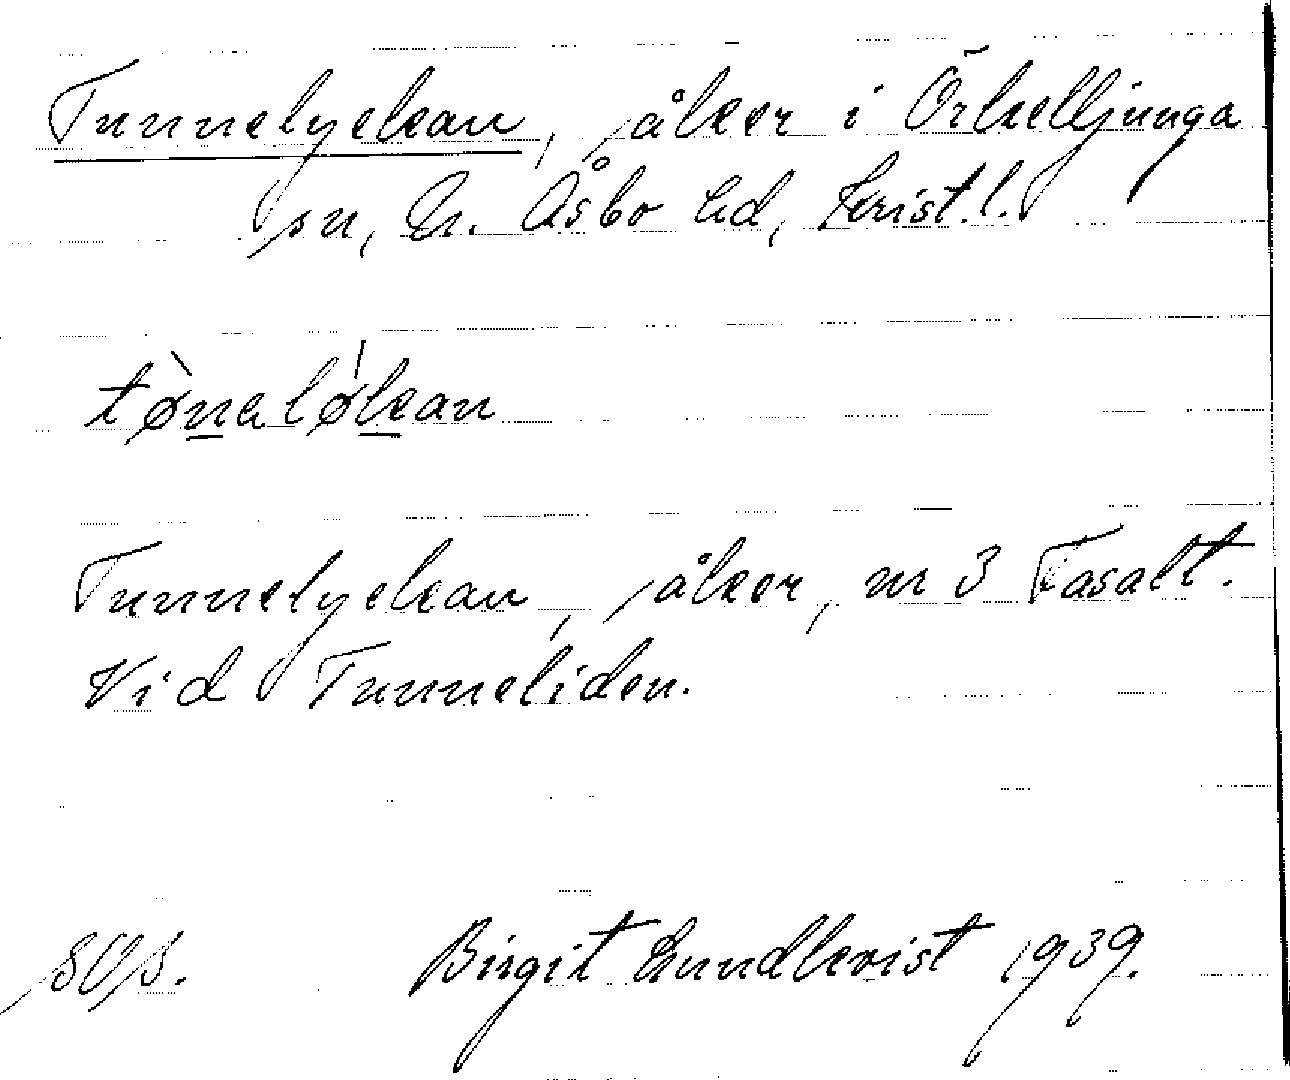 Tunnelyckan, åker i Örkelljunga
sn, N. Åsbo hd, Krist. l.
tø̀nalø̍kan
Tunnelyckan, åker, nr 3 Fasalt.
Vid Tunneliden.
Birgit Lundkvist 1939.